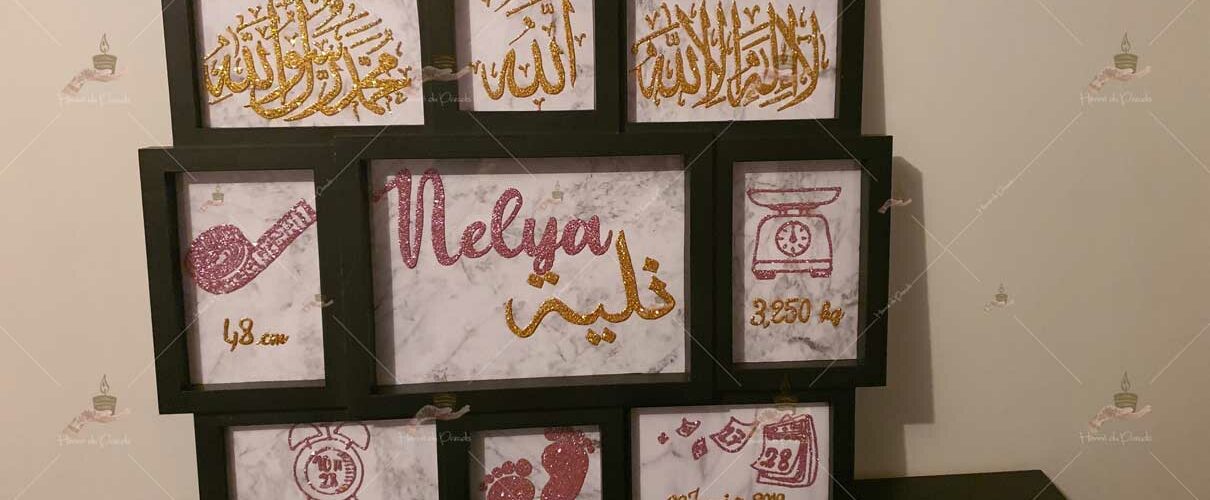 لا إله إلا الله
الله
محمد رسول الله
48 cm
Nelya
نلية
3,250 kg
28